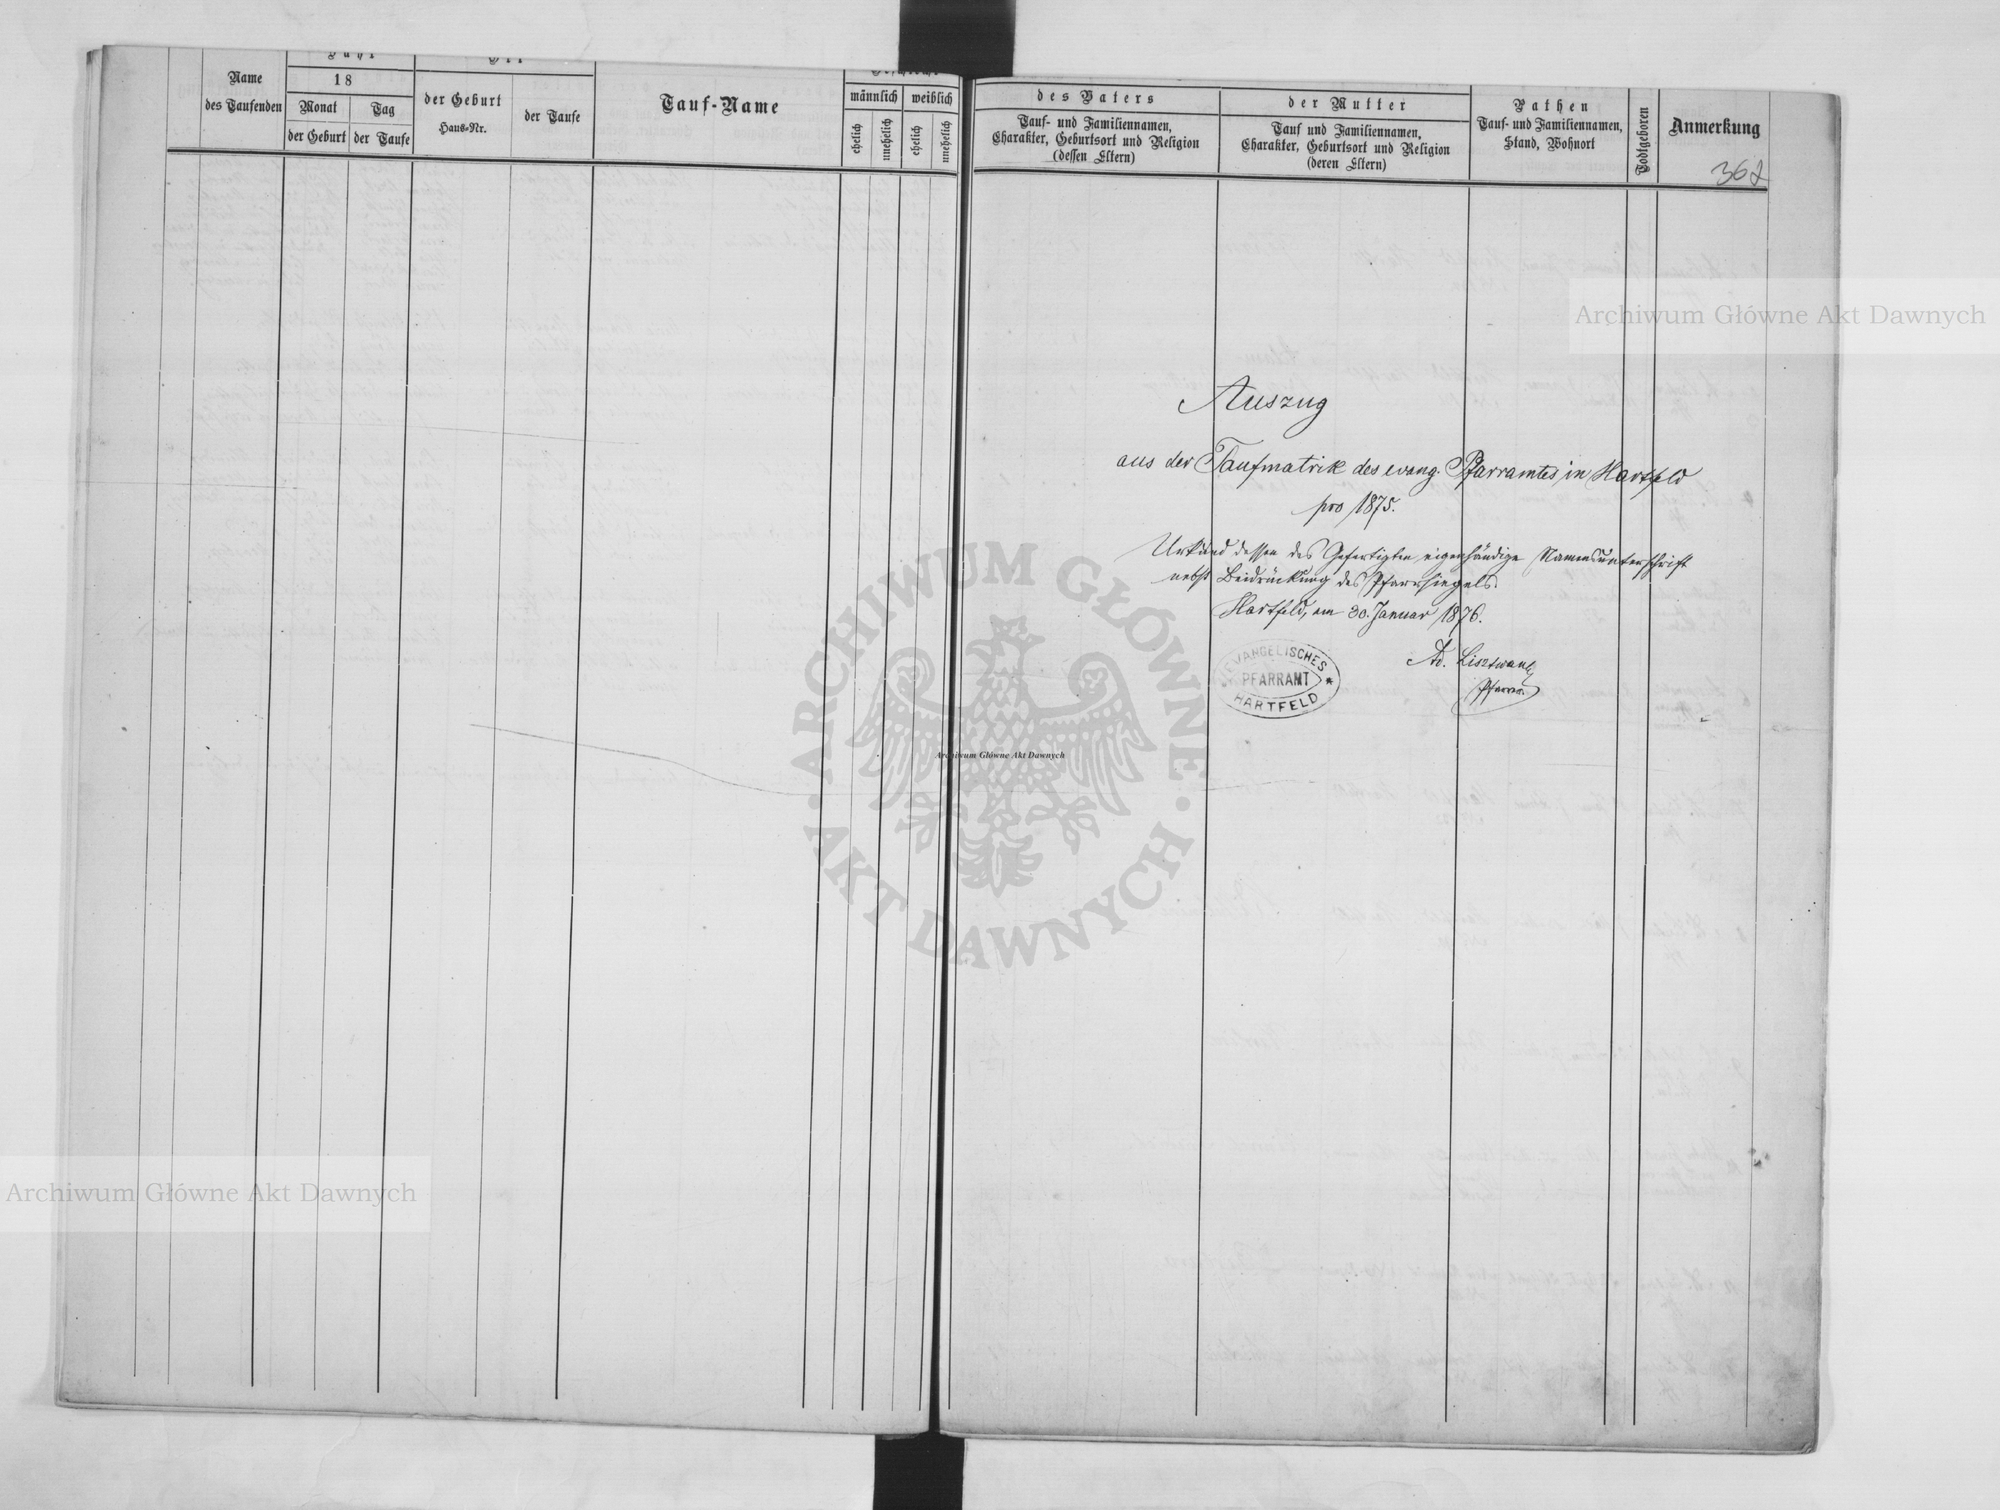 Name
des Taufenden
Jahr
18
Monat
der Geburt
Tag
der Taufe
Ort
der Geburt
Haus-Nr.
der Taufe
Tauf-Name
männlich
weiblich
ehelich
unehelich
ehelich
unehelich
des Vaters
Tauf- und Familiennamen,
Charakter, Geburtsort und Religion
(dessen Eltern)
der Mutter
Tauf und Familiennamen,
Charakter, Geburtsort und Religion
(deren Eltern)
Pathen
Tauf- und Familiennamen,
Stand, Wohnort
Todtgeboren
Anmerkung
362
Auszug
aus der Taufmatrik des evang. Pfarramtes in Hartfeld
pro 1875.
Urkund dessen des Gefertigten eigenhändige Namensunterschrift
nebst Beidrückung des Pfarrsiegels.
Hartfeld, am 30. Januar 1876.
Ad.
Pfarrer
EVANGELISCHES
PFARRAMT
HARTFELD
Archiwum Główne Akt Dawnych
ARCHIWUM GŁÓWNE
AKT DAWNYCH
Archiwum Główne Akt Dawnych
Archiwum Główne Akt Dawnych